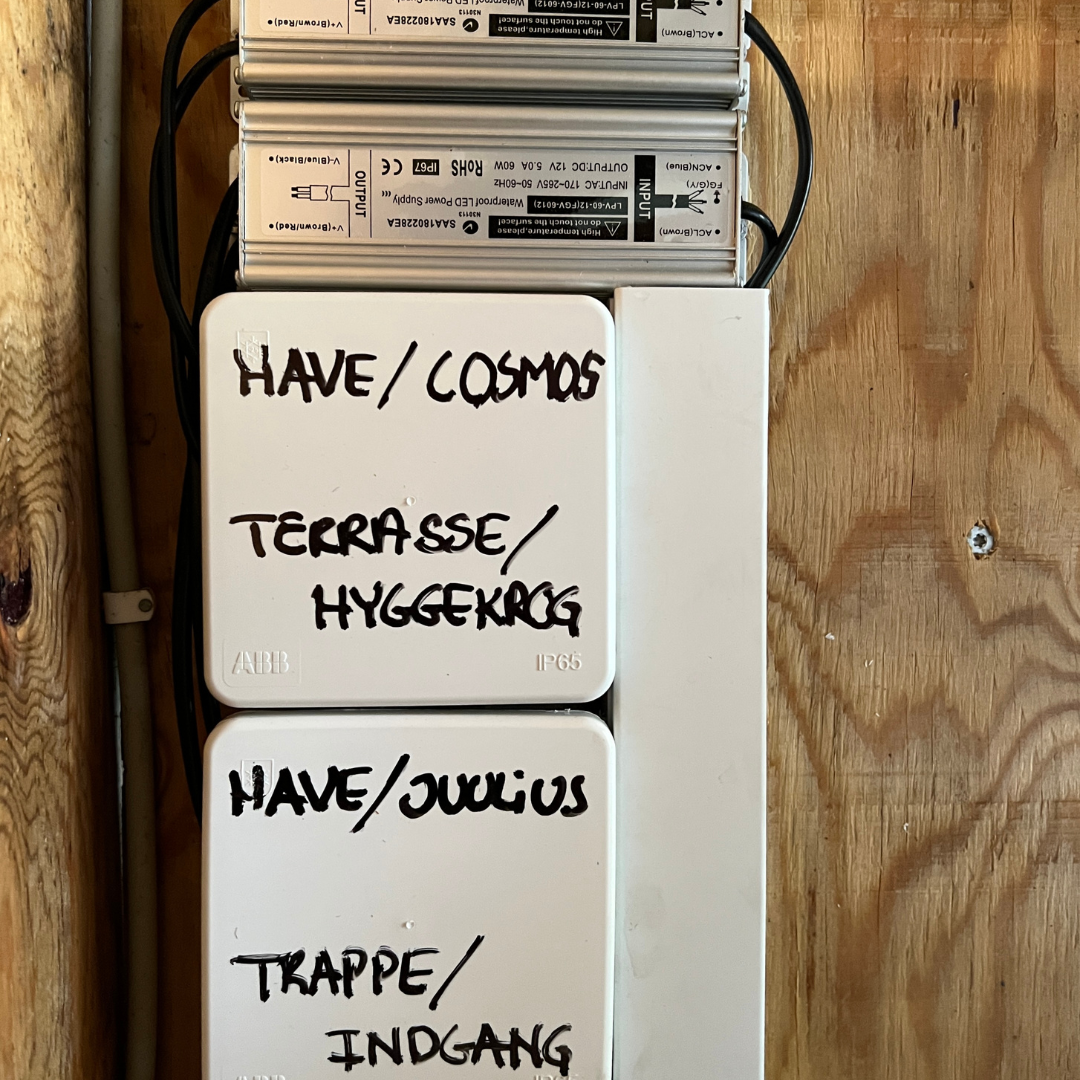 V+(Brown/Red)
OUTPUT
LPV-60-12(FGV-6012)
Waterproof LED Power Supply
High temperature,please
do not touch the surface!
N30113
SAA180228EA
INPUT
ACL(Brown)
V-(Blue/Black)
V+(Brown/Red)
OUTPUT
CE IP67 RoHS
OUTPUT:DC 12V 5.0A 60W
INPUT:AC 170~265V 50~60Hz
LPV-60-12(FGV-6012)
Waterproof LED Power Supply
High temperature,please
do not touch the surface!
N30113
SAA180228EA
INPUT
ACN(Blue)
FG(G/Y)
ACL(Brown)
HAVE/COSMOS
TERRASSE/
HYGGEKROG
ABB IP65
HAVE/JUULiUS
TRAPPE/
INDGANG